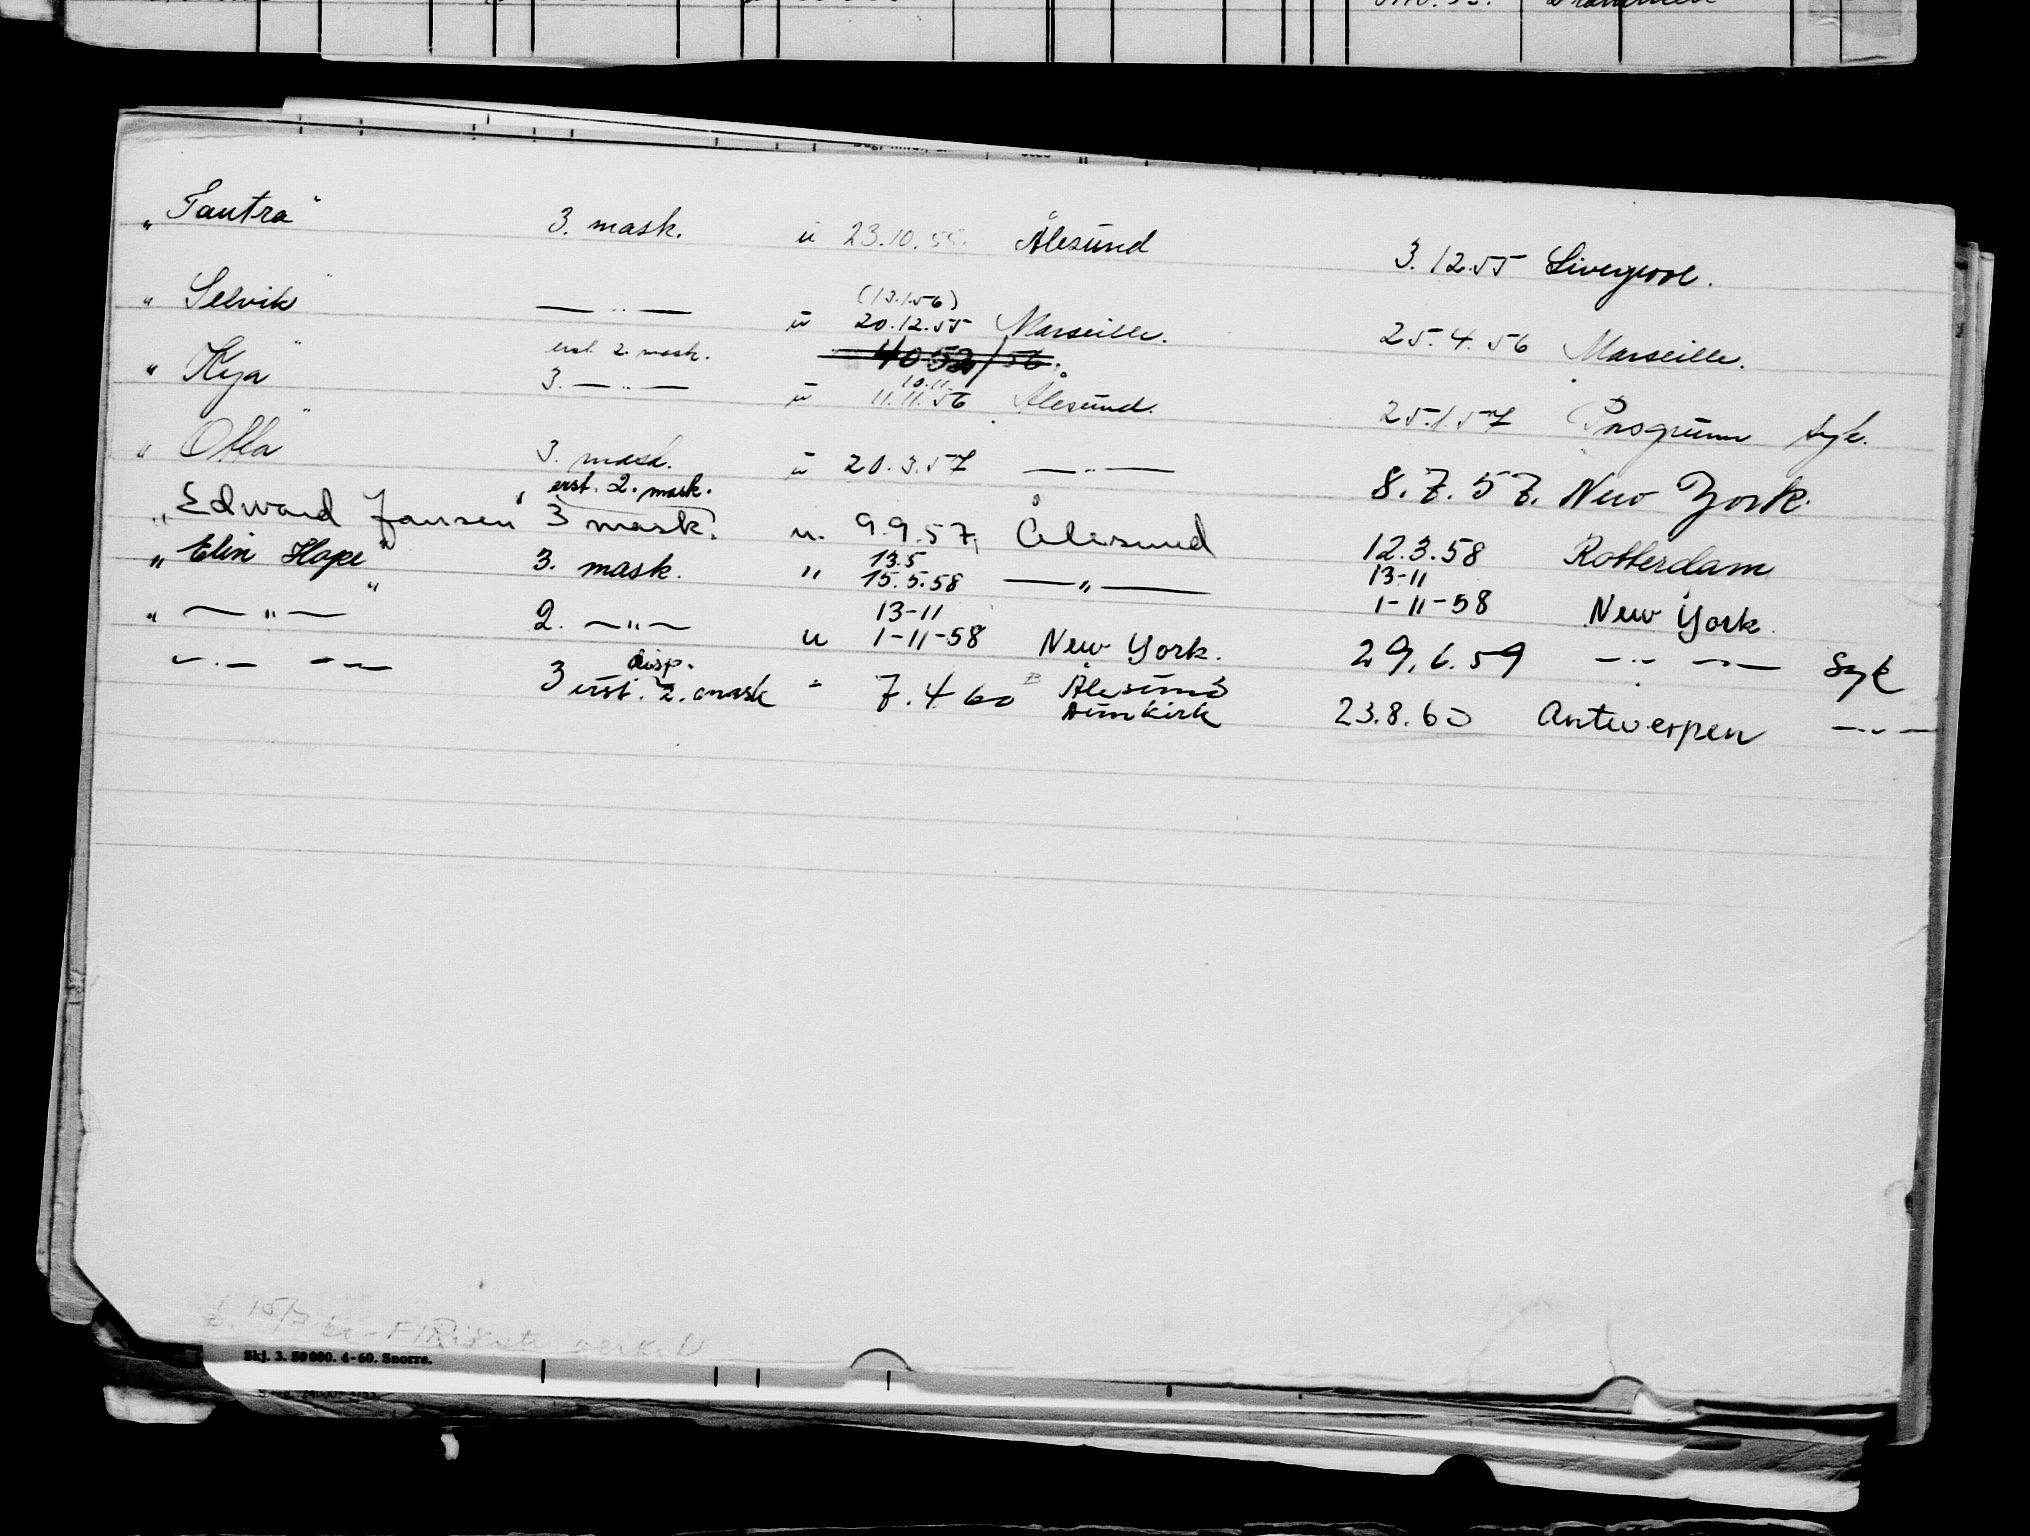 "Tautra" 3. mask. u 23.10.55. Ålesund 3.12.55 Liverpool.
(13.1.56)
"Selvik" — " — u 20.12.55 Marseille. 25.4.56 Marseille.
erst. 2. mask.
10.11
"Kya" 3. — " — u 11.11.56 Ålesund. 25.1.57 Porsgrunn syk.
"Otta" 3. mask. u 20.3.57 — " — 8.7.57. New York.
erst. 2. mask.
"Edward Jansen" 3 mask. u. 9.9.57, Ålesund 12.3.58 Rotterdam
13.5 13-11
"Elin Hope" 3. mask. " 15.5.58 — " — 1-11-58 New York.
13-11
" — " — " 2. — " — u 1-11-58 New York. 29.6.59 — " — — " — Syk
disp.
— " — — " — 3 erst. 2. mask " 7.4.60 Ålesund 23.8.60 Antwerpen — " —
Dunkirk
Skj. 3. 50 000. 4-60. Snorre.